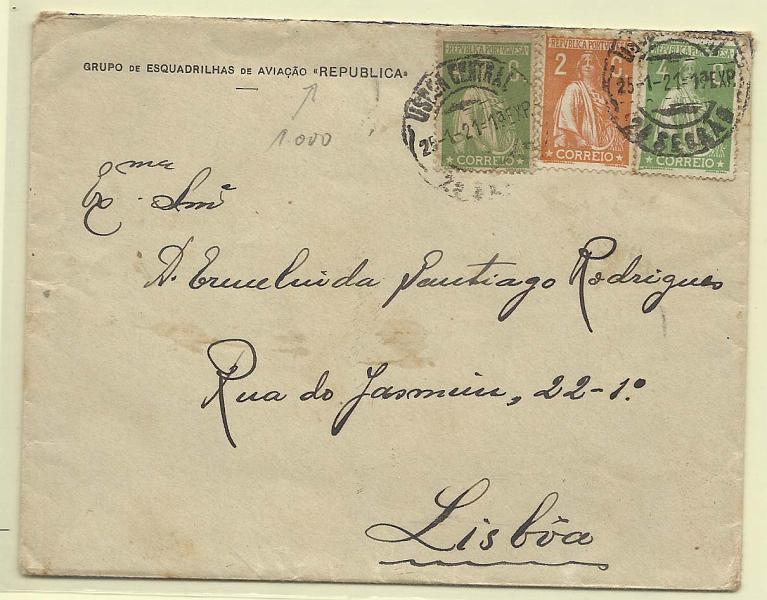 GRUPO DE ESQUADRILHAS DE AVIAÇÃO «REPUBLICA»
1.000
REPUBLICA PORTUGUESA
C.
CORREIO
REPUBLICA PORTUGUESA
2 C.
CORREIO
REPUBLICA PORTUGUESA
4 C.
CORREIO
LISBOA CENTRAL
25-1-21-1ªEXP
25-1-21-1ªEXP
2ª SECÇÃO
Exma Snrª
D. Ermelinda Santiago Rodrigues
Rua do Jasmim, 22-1º
Lisbôa